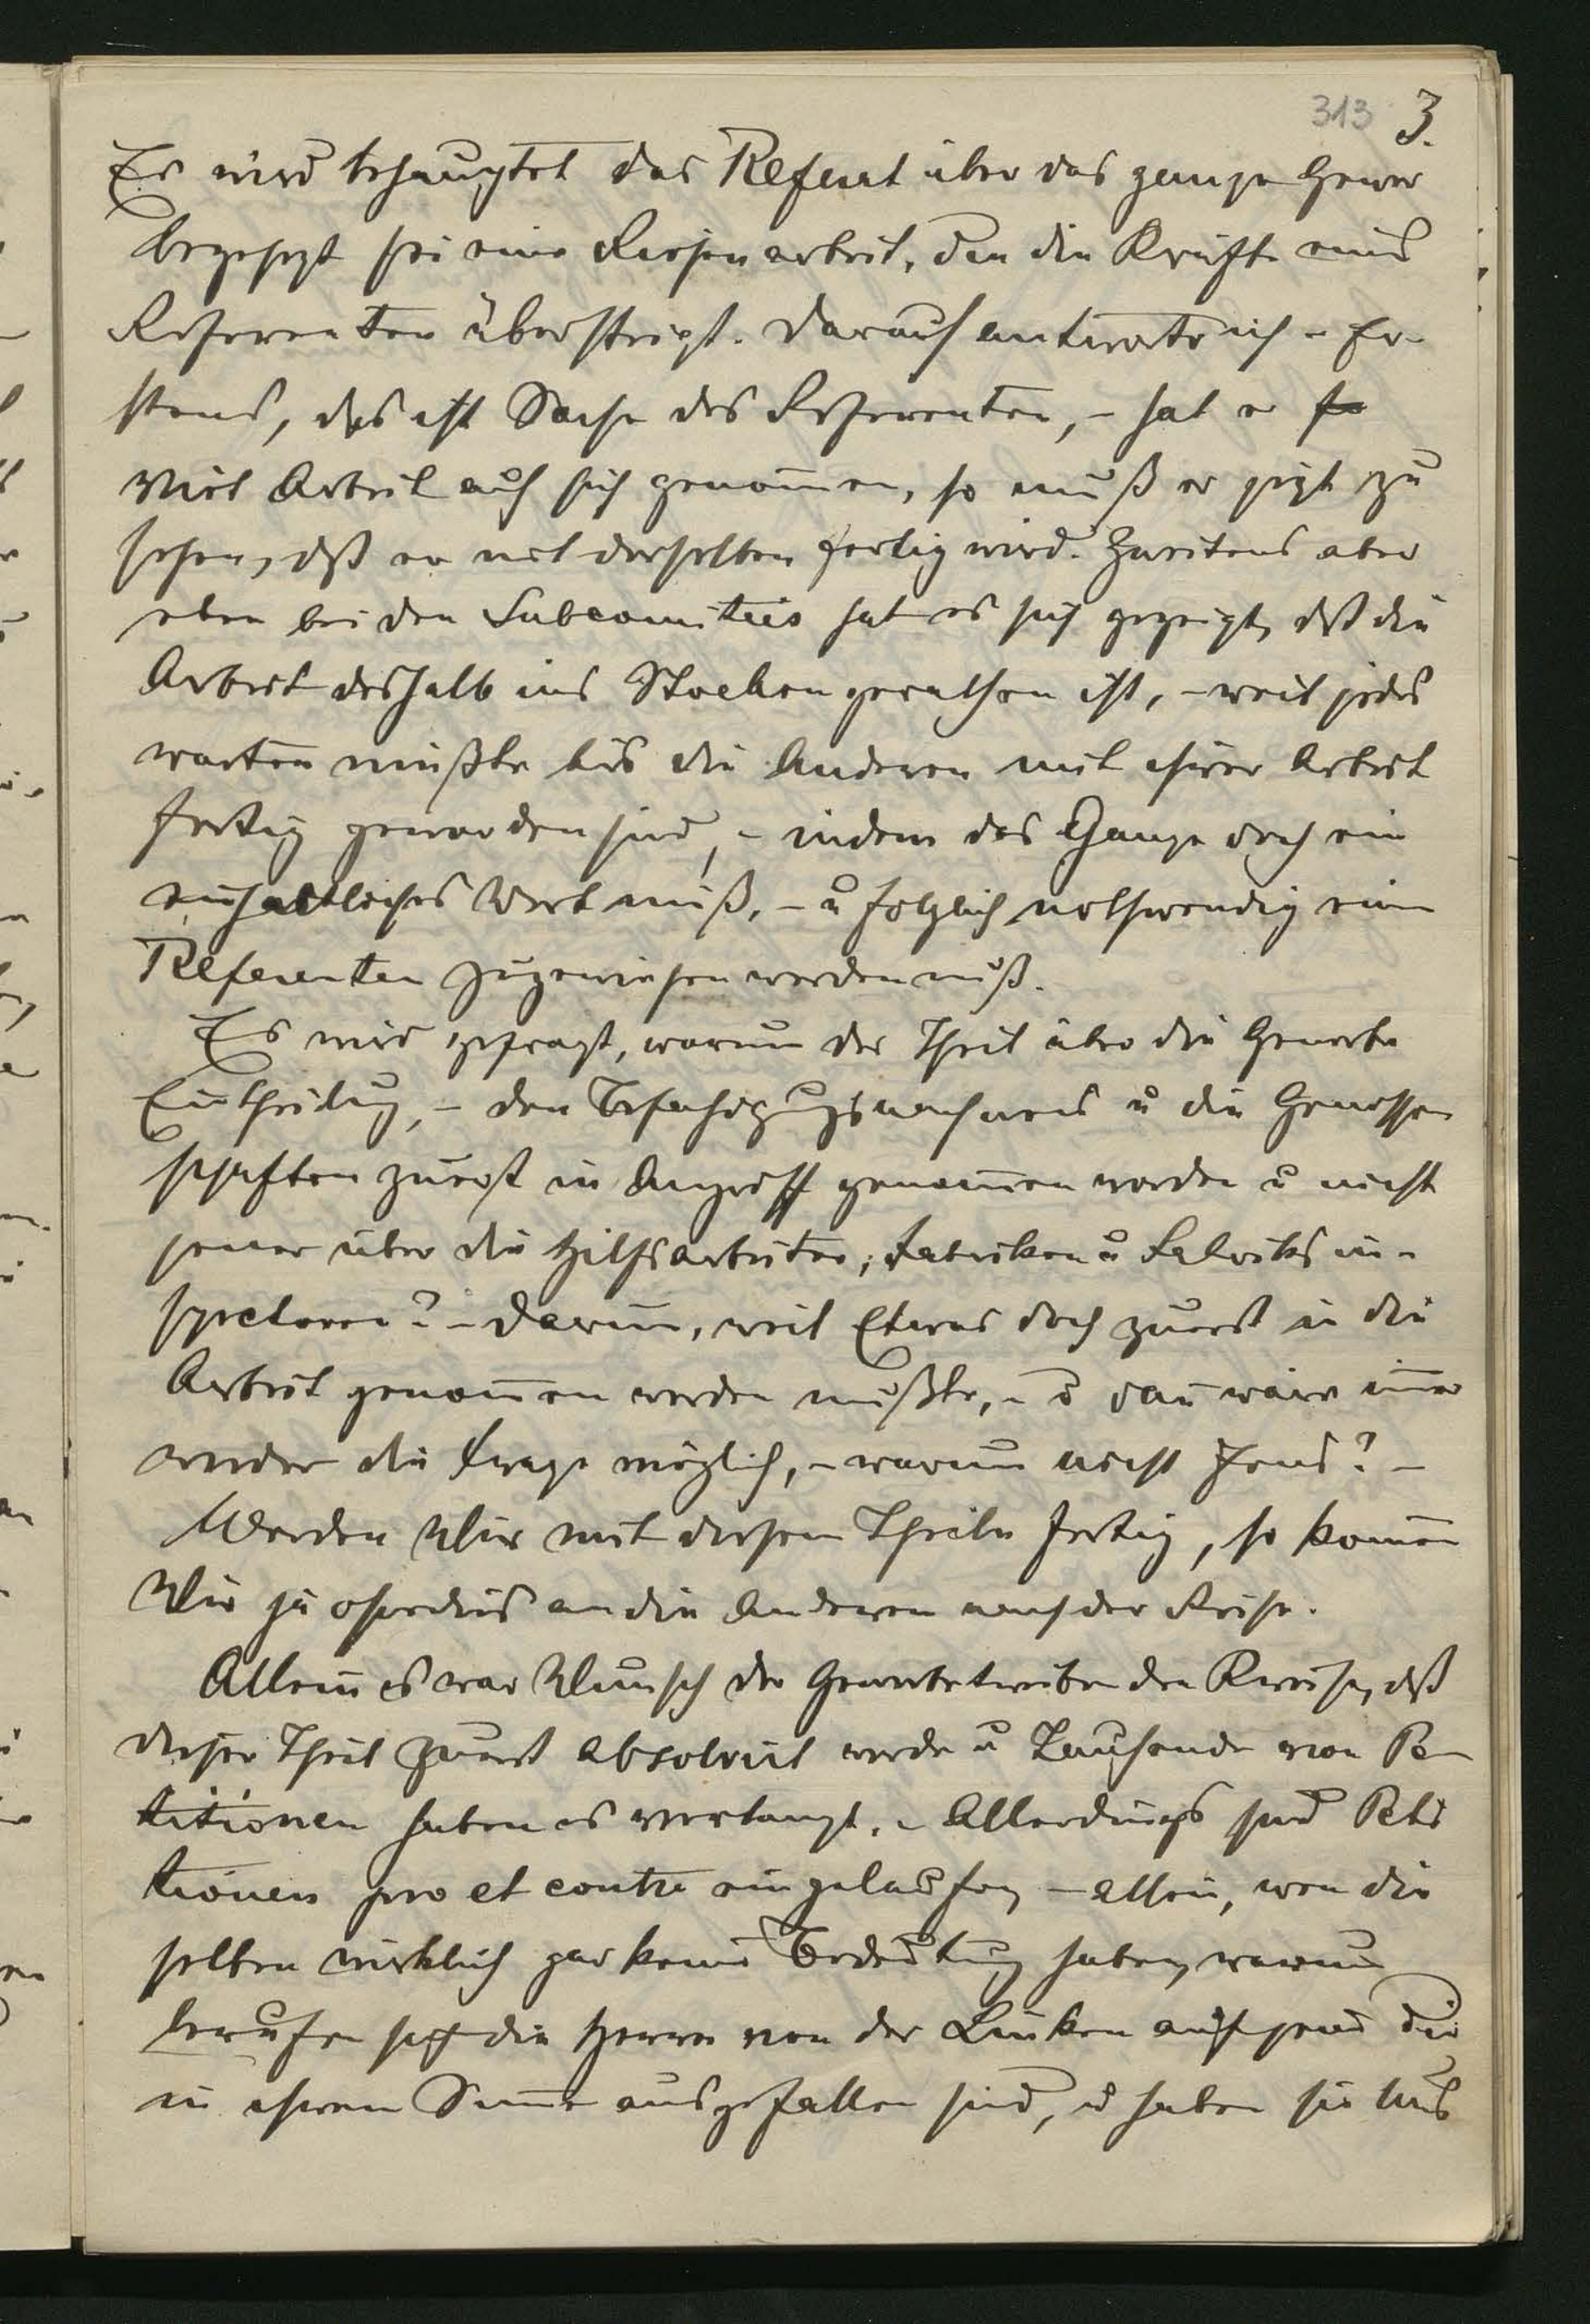 313 3.
Es wird behauptet das Referat über das ganze Gewer
begesezt sei eine Riesenarbeit, den die Kräfte eines
Referenten übersteigt. Darauf antworte ich - Er-
stens, dß ist Sache des Referenten, - hat er so
viel Arbeit auf sich genom̄en, so muß er jezt zu
sehen, dß er mit derselben fertig wird. Zweitens aber
eben bei den Subcomitéis hat es sich gezeigt, dß die
Arbeit deshalb ins Stocken gerathen ist, - weil jedes
warten mußte bis die Anderen mit ihrer Arbeit
fertig geworden sind, - indem das Ganze doch ein
einheitliches Werk muß, - u folglich nothwendig einem
Referenten zugewiesen werden muß.
Es wird gefragt, warum der Theil über die Gewerbe
Eintheilug, - den Befähigugsnachweis u die Genossen
schaften zuerst in Angriff genom̄en worden u nicht
jener über die Hilfsarbeiter, Fabriken u Fabriksin-
spectoren? - Darum, weil Etwas doch zuerst in die
Arbeit genom̄en werden mußte, - u dan̄ wäre im̄er
wieder die Frage möglich, - warum nicht Jenes? -
Werden Wir mit diesem Theile fertig, so kom̄en
Wir ja ohnedies an die Anderen nach der Reihe.
Allein es war Wunsch der Gewerbetreibenden Kreise, dß
dieser Theil zuerst absolvirt werde u Tausende von Pe-
titionen haben es verlangt. - Allerdings sind Peti
tionen pro et contra eingelaufen, - allein, wen die
selben wirklich gar keine Bedeutug haben, warum
berufen sich die Herren von der Linken auf jene die
in ihrem Sinne ausgefallen sind, u haben sie Uns